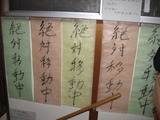 絶対移動中
絶対移動中
絶対移動中
絶対移動中
絶対移動中